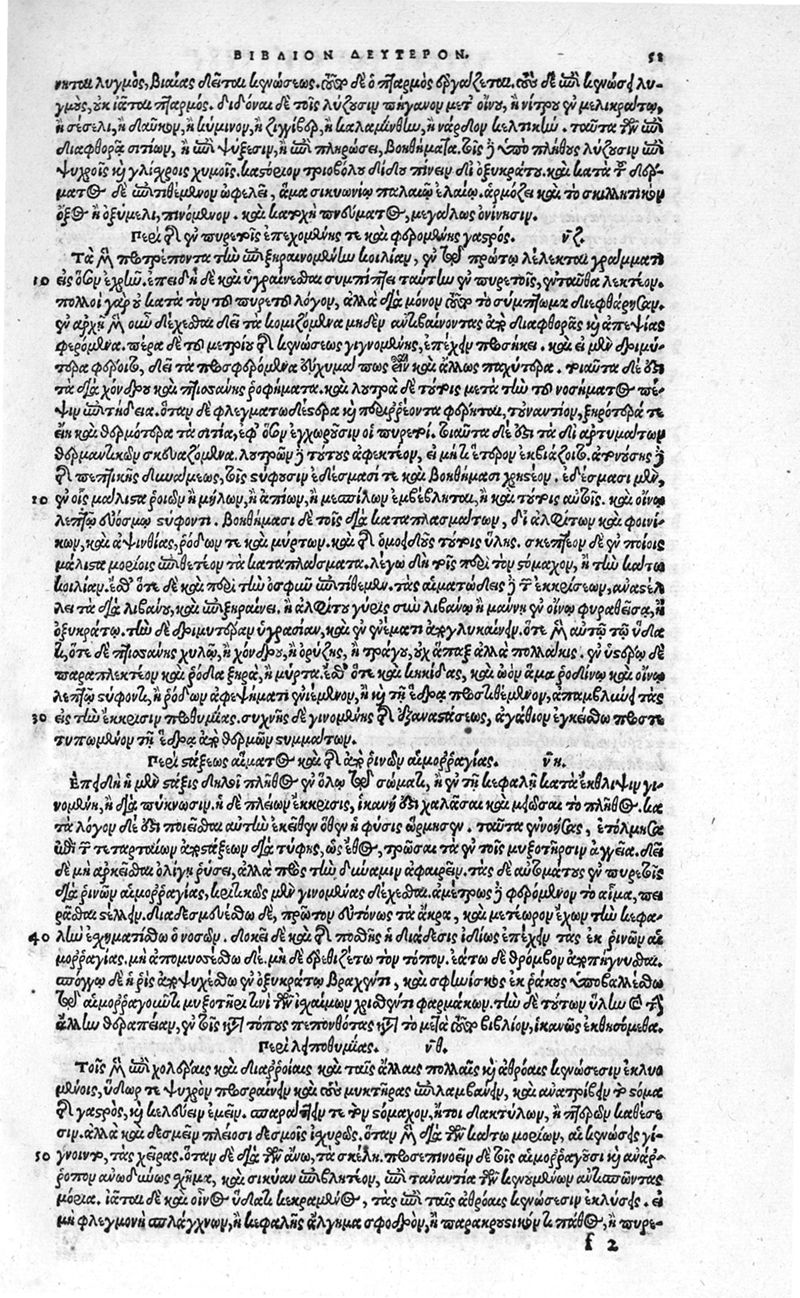 ΒΙΒΛΙΟΝ ΔΕΥΤΕΡΟΝ. 58
νηται λυγμὸς, βιαίας δεῖται κενώσεως. τοῦτο δὲ ὁ πταρμὸς ἐργάζεται. τοὺς δὲ ἐπὶ κενώσει λυ-
γμοὺς, οὐκ ἰᾶται πταρμός. διδόναι δὲ τοῖς λύζουσιν πήγανον μετ' οἴνου, ἢ νίτρου ἐν μελικράτῳ,
ἢ σέσελι, ἢ δαῦκον, ἢ κύμινον, ἢ ζιγγίβερ, ἢ καλαμίνθην, ἢ νάρδον κελτικήν. ταῦτα τῶν ἐπὶ
διαφθορᾷ σιτίων, ἢ ἐπὶ ψύξεσιν, ἢ ἐπὶ πληρώσει, βοηθήματα. τοῖς δὲ ὑπὸ πλήθους λύζουσιν ἐπὶ
ψυχροῖς καὶ γλίχροις χυμοῖς. καστόριον τριοβόλου δίδου πίνειν δι' ὀξυκράτου. καὶ κατὰ τοῦ δέρ-
ματος δὲ ἐπιτιθέμενον ὠφελεῖ, ἅμα σικυωνίῳ παλαιῷ ἐλαίῳ. ἁρμόζει καὶ τὸ σκιλλητικὸν
ὄξος ἢ ὀξύμελι, πινόμενον. καὶ κατοχὴ πνεύματος, μεγάλως ὀνίνησιν.
Περὶ τῆς ἐν πυρετοῖς ἐπεχομένης τε καὶ φερομένης γαστρός. νζ.
Τὰ μὲν προτρέποντα τὴν ἐπιξηραινομένην κοιλίαν, ἐν τῷ πρώτῳ λέλεκται γράμματι
10 εἰς ὅσον ἐχρῆν. ἐπειδὴ δὲ καὶ ὑγραίνεσθαι συμπίπτει ταύτην ἐν πυρετοῖς, ἐνταῦθα λεκτέον.
πολλοὶ γὰρ οὐ κατὰ τὸν τοῦ πυρετοῦ λόγον, ἀλλὰ διὰ μόνον τοῦτο τὸ σύμπτωμα διεφθάρησαν.
ἐν ἀρχῇ μὲν οὖν δέχεσθαι δεῖ τὰ κομιζόμενα μηδὲν ἀντιβαίνοντας ἀπὸ διαφθορᾶς καὶ ἀπεψίας
φερόμενα. πέρα δὲ τοῦ μετρίου τῆς κενώσεως γιγνομένης, ἐπέχειν προσήκει. καὶ εἰ μὲν δριμύ-
τερα φέροιτο, δεῖ τὰ προσφερόμενα εὔχυμά πως εἶναι καὶ ἄλλως παχύτερα. τοιαῦτα δέ ἐστι
τὰ διὰ χόνδρου καὶ πτισσάνης ῥοφήματα. καὶ λουτρὰ δὲ τούτοις μετὰ τὴν τοῦ νοσήματος πέ-
ψιν ἐπιτήδεια. ὅταν δὲ φλεγματωδέστερα καὶ περιῤῥέοντα φέρηται, τοὐναντίον, ξηρότερά τε
εἴη καὶ θερμότερα τὰ σιτία, ἐφ' ὅσον ἐγχωροῦσιν οἱ πυρετοί. τοιαῦτα δέ ἐστι τὰ δι' ἀρτυμάτων
θερμαντικῶν σκευαζόμενα. λουτρῶν δὲ τούτους ἀφεκτέον, εἰ μή τι ἕτερον ἐκβιάζοιτο. ἀτονούσης δὲ
τῆς πεπτικῆς δυνάμεως, τοῖς στύφουσιν ἐδέσμασί τε καὶ βοηθήμασι χρηστέον. ἐδέσμασι μὲν,
20 ἐν οἷς μάλιστα ῥοιῶν ἢ μήλων, ἢ ἀπίων, ἢ μεσπίλων ἐμβέβληται, ἢ καὶ τούτοις αὐτοῖς. καὶ οἴνῳ
λεπτῷ εὐόσμῳ στύφοντι. βοηθήμασι δὲ τοῖς διὰ καταπλασμάτων, δι' ἀλφίτων καὶ φοινί-
κων, καὶ ἀψινθίας, ῥόδων τε καὶ μύρτων. καὶ τῆς ὁμοειδοῦς τούτοις ὕλης. σκεπτέον δὲ ἐν ποίοις
μάλιστα μορίοις ἐπιθετέον τὰ καταπλάσματα. λέγω δὴ τοῖς περὶ τὸν στόμαχον, ἢ τὴν κάτω
κοιλίαν. ἔσθ' ὅτε δὲ καὶ περὶ τὴν ὀσφὺν ἐπιτιθέμεν. τὰς αἱματώδεις δὲ τῶν ἐκκρίσεων, ἀναστέλ
λει τὰ διὰ λιβάνου, καὶ ἐπιξηραίνει. ἢ ἀλφίτου γῦρις σὺν λιβάνῳ ἢ μάννῃ ἐν οἴνῳ φυραθεῖσα, ἢ
ὀξυκράτῳ. τὴν δὲ δριμυτέραν ὑγρασίαν, καὶ ἐν ἐνέματι ἀπογλυκαίνειν. ὁτὲ μὲν αὐτῷ τῷ ὕδα
τι, ὁτὲ δὲ πτισσάνης χυλῷ, ἢ χόνδρου, ἢ ὀρύζης, ἢ τράγου, οὐχ ἅπαξ ἀλλὰ πολλάκις. ἐν ὑστέρῳ δὲ
παραπλεκτέον καὶ ῥόδα ξηρὰ, ἢ μύρτα. ἔσθ' ὅτε καὶ κηκίδας, καὶ ὠὸν ἅμα ῥοδίνῳ καὶ οἴνῳ
λεπτῷ στύφοντι, ἢ ῥόδων ἀφεψήματι ἐνιέμενον, ἢ καὶ τῇ ἕδρᾳ προστιθέμενον, ἀπαμβλύνει τὰς
30 εἰς τὴν ἔκκρισιν προθυμίας. συχνῆς δὲ γινομένης τῆς ἐξαναστάσεως, ἀγάθιον ἐγκείσθω προστε
τυπωμένον τῇ ἕδρᾳ ἀπὸ θερμῶν στυμμάτων.
Περὶ στάξεως αἵματος καὶ τῆς ἀπὸ ῥινῶν αἱμοῤῥαγίας. νη.
Ἐπειδὴ ἡ μὲν στάξις δηλοῖ πλῆθος ἐν ὅλῳ τῷ σώματι, ἢ ἐν τῇ κεφαλῇ κατὰ ἔκθλιψιν γι-
νομένη, ἢ διὰ πύκνωσιν. ἡ δὲ πλείων ἔκκρισις, ἱκανή ἐστι χαλάσαι καὶ μειῶσαι τὸ πλῆθος. κα
τὰ λόγον δέ ἐστι ποιεῖσθαι αὐτὴν ἐκεῖθεν ὅθεν ἡ φύσις ὥρμησεν. ταῦτα ἐννοήσας, ἐτόλμησα
ἐπὶ τῶν τεταρταίων ἀποστάξεων διὰ τύφης, ὡς ἔθος, τρῶσαι τὰ ἐν τοῖς μυξοτῆρσιν ἀγγεῖα. δεῖ
δὲ μὴ ἀρκεῖσθαι ὀλίγῃ ῥύσει, ἀλλὰ πρὸς τὴν δύναμιν ἀφαιρεῖν. τὰς δὲ αὐτομάτους ἐν πυρετοῖς
διὰ ῥινῶν αἱμοῤῥαγίας, κριτικῶς μὲν γινομένας δέχεσθαι. ἀμέτρως δὲ φερόμενον τὸ αἷμα, πει
ρᾶσθαι στέλλειν. διαδεσμείσθω δὲ, πρῶτον εὐτόνως τὰ ἄκρα, καὶ μετέωρον ἔχων τὴν κεφα-
40 λὴν ἐσχηματίσθω ὁ νοσῶν. δοκεῖ δὲ καὶ τῆς πόσθης ἡ διάδεσις ἰδίως ἐπέχειν τὰς ἐκ ῥινῶν αἱ
μοῤῥαγίας. μὴ ἀπομυσσέσθω δέ. μὴ δὲ ἐρεθιζέτω τὸν τόπον. ἐάτω δὲ θρόμβον ἀποπήγνυσθαι.
σπόγγῳ δὲ ἡ ῥὶς ἀποψυχέσθω ἐν ὀξυκράτῳ βραχέντι, καὶ σφηνίσκος ἐκ ῥάκους ὑποβαλλέσθω
τῷ αἱμοῤῥαγοῦντι μυξοτῆρι τινὶ τῶν ἰσχαίμων χρισθέντι φαρμάκων. τὴν δὲ τούτων ὕλην καὶ τὴν
ἄλλην θεραπείαν, ἐν τοῖς κατὰ τόπους πεπονθότας κατὰ τὸ μετὰ τοῦτο βιβλίον, ἱκανῶς ἐκθησόμεθα.
Περὶ λειποθυμίας. νθ.
Τοῖς μὲν ἐπὶ χολέραις καὶ διαῤῥοίαις καὶ ταῖς ἄλλαις πολλαῖς καὶ ἀθρόαις κενώσεσιν ἐκλυο
μένοις, ὕδωρ τε ψυχρὸν προσραίνειν καὶ τοὺς μυκτῆρας ἐπιλαμβάνειν, καὶ ἀνατρίβειν τὸ στόμα
τῆς γαστρὸς, καὶ κελεύειν ἐμεῖν. σπαράττειν τε τὸν στόμαχον, ἤτοι δακτύλων, ἢ πτερῶν καθέσε
σιν. ἀλλὰ καὶ δεσμεῖν πλείοσι δεσμοῖς ἰσχυρῶς. ὅταν μὲν διὰ τῶν κάτω μορίων, αἱ κενώσεις γί-
50 γνοιντο, τὰς χεῖρας. ὅταν δὲ διὰ τῶν ἄνω, τὰ σκέλη. προσεπινοεῖν δὲ τοῖς αἱμοῤῥαγοῦσι καὶ ἀνάῤ-
ροπον ἀνωδύνως σχῆμα, καὶ σικύαν ἐπιβλητέον, ἐπὶ τἀναντία τῶν κενουμένων ἀντισπῶντας
μόρια. ἰᾶται δὲ καὶ οἶνος ὕδατι κεκραμένος, τὰς ἐπὶ ταῖς ἀθρόαις κενώσεσιν ἐκλύσεις. εἰ
μὴ φλεγμονὴ σπλάγχνων, ἢ κεφαλῆς ἄλγημα σφοδρὸν, ἢ παρακρουστικόν τι πάθος, ἢ πυρε-
f 2